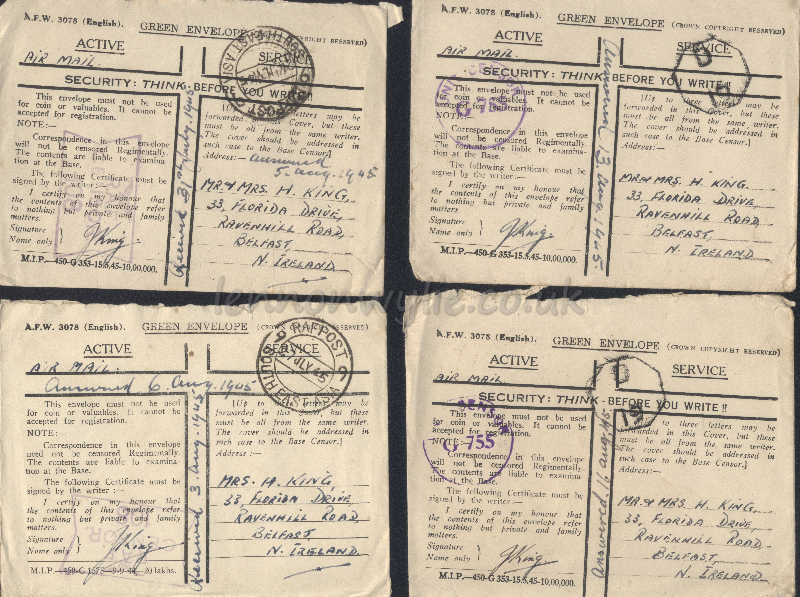 A.F.W. 3078 (English). GREEN ENVELOPE (CROWN COPYRIGHT RESERVED)
ACTIVE SERVICE
AIR MAIL
SECURITY: THINK BEFORE YOU WRITE!!
This envelope must not be used
for coin or valuables. It cannot be
accepted for registration.
NOTE:—
Correspondence in this envelope
will not be censored Regimentally.
The contents are liable to examina-
tion at the Base.
The following Certificate must be
signed by the writer:—
I certify on my honour that
the contents of this envelope refer
to nothing but private and family
matters.
Signature
Name only } J King
M.I.P.—450-G 353-15.5.45-10,00,000.
Received 31st July. 1945
letters may be
forwarded in this Cover, but these
must be all from the same writer.
The cover should be addressed in
such case to the Base Censor.]
Address:— answered
5. aug. 1945
MR & MRS. H. KING,
33, FLORIDA DRIVE,
RAVENHILL ROAD,
BELFAST,
N. IRELAND
SOUTH EAST ASIA
A.F.W. 3078 (English). GREEN ENVELOPE (CROWN COPYRIGHT RESERVED)
ACTIVE SERVICE
AIR MAIL
SECURITY: THINK BEFORE YOU WRITE!!
This envelope must not be used
for coin or valuables. It cannot be
accepted for registration.
NOTE:—
Correspondence in this envelope
will not be censored Regimentally.
The contents are liable to examina-
tion at the Base.
The following Certificate must be
signed by the writer:—
I certify on my honour that
the contents of this envelope refer
to nothing but private and family
matters.
Signature
Name only } J King
M.I.P.—450-G 353-15.5.45-10,00,000.
Answered 13. aug. 1945.
[Up to three letters may be
forwarded in this Cover, but these
must be all from the same writer.
The cover should be addressed in
such case to the Base Censor.]
Address:—
MR & MRS. H. KING,
33, FLORIDA DRIVE,
RAVENHILL ROAD,
BELFAST,
N. IRELAND
lennonwylie.co.uk
A.F.W. 3078 (English). GREEN ENVELOPE (CROWN COPYRIGHT RESERVED)
ACTIVE SERVICE
AIR MAIL
Answered 6. Aug. 1945.
This envelope must not be used
for coin or valuables. It cannot be
accepted for registration.
NOTE:—
Correspondence in this envelope
will not be censored Regimentally.
The contents are liable to examina-
tion at the Base.
The following Certificate must be
signed by the writer:—
I certify on my honour that
the contents of this envelope refer
to nothing but private and family
matters.
Signature
Name only } J King
Received 3. Aug. 1945
[Up to letters may be
forwarded in this Cover, but these
must be all from the same writer.
The cover should be addressed in
such case to the Base Censor.]
Address:—
MRS. H. KING,
33 FLORIDA DRIVE
RAVENHILL ROAD,
BELFAST,
N. IRELAND
RAFPOST 9
SOUTH EAST ASIA
CENSOR
A.F.W. 3078 (English). GREEN ENVELOPE (CROWN COPYRIGHT RESERVED)
ACTIVE SERVICE
AIR MAIL
SECURITY: THINK - BEFORE YOU WRITE!!
This envelope must not be used
for coin or valuables. It cannot be
accepted for registration.
NOTE:—
755
Correspondence in this envelope
will not be censored Regimentally.
The contents are liable to examina-
tion at the Base.
The following Certificate must be
signed by the writer:—
I certify on my honour that
the contents of this envelope refer
to nothing but private and family
matters.
Signature
Name only } J King
M.I.P.—450-G 353-15.5.45-10,00,000.
Answered. 16 aug. 1945
to three letters may be
forwarded in this Cover, but these
must be all from the same writer.
The cover should be addressed in
such case to the Base Censor.]
Address:—
MR & MRS. H. KING,
33, FLORIDA DRIVE,
RAVENHILL ROAD
BELFAST,
N. IRELAND